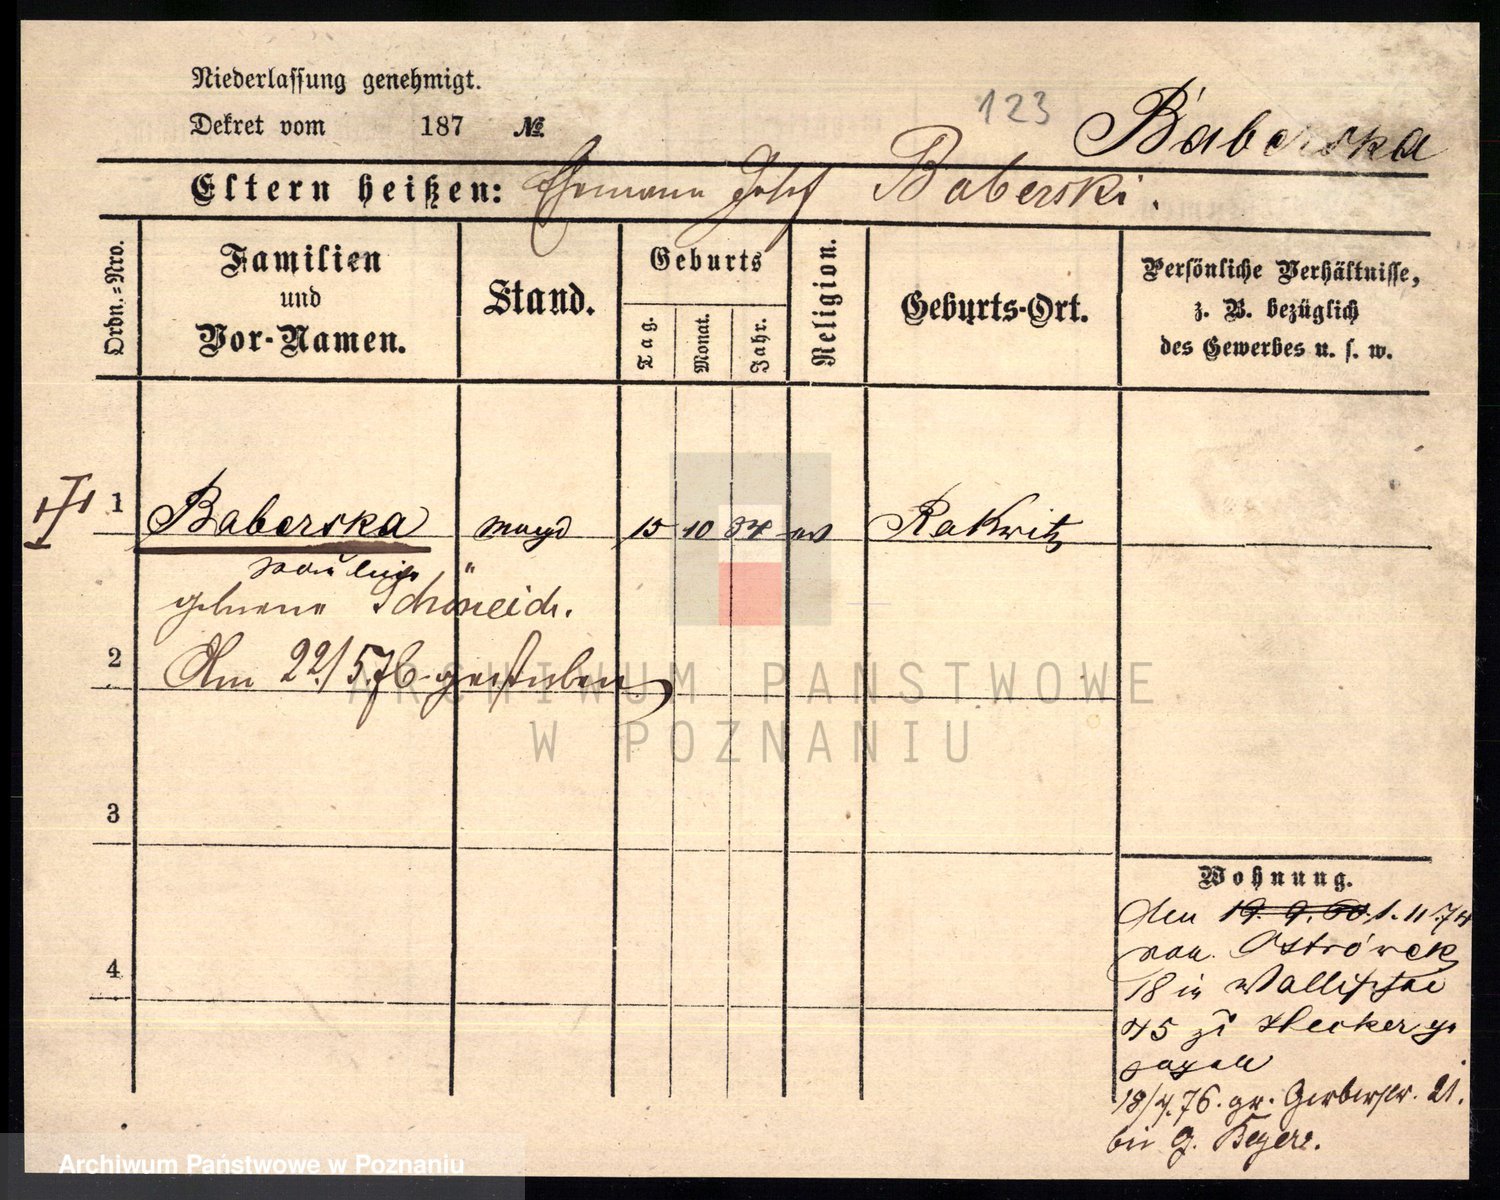 Niederlassung genehmigt.
Dekret vom 187 №
123
Baberska
Eltern heißen: Ehemann Josef Baberski.
Ordn.-Nro.
Familien
und
Vor-Namen.
Stand.
Geburts
Tag.
Monat.
Jahr.
Religion.
Geburts-Ort.
Persönliche Verhältnisse,
z. B. bezüglich
des Gewerbes u. s. w.
1 Baberska Magd 15 10 34 ev Rakwitz
geborene Schöneich.
2 Am 22/5.76. gestorben
3
Wohnung.
Den 19. 9. 1. 11. 74
von Ostrówek
18 in Wallischei
45 zu Hecker
4
18/4.76. gr. Gerberstr. 21.
bei G. Beyer.
ARCHIWUM PAŃSTWOWE
W POZNANIU
Archiwum Państwowe w Poznaniu